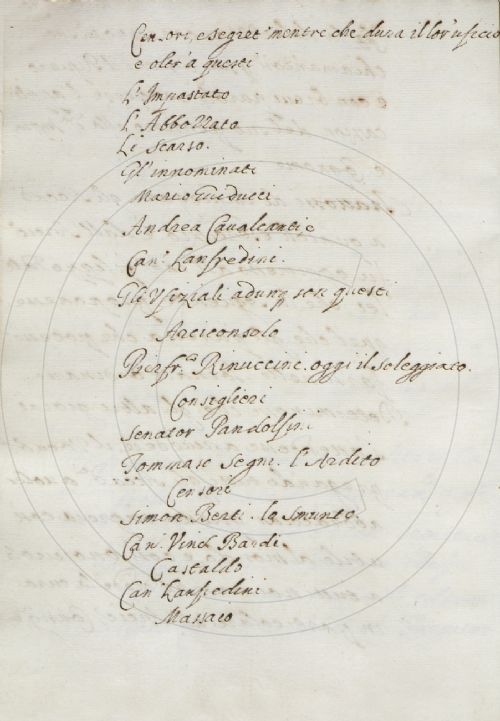 Censori, e segret' mentre che dura il lor' ufficio
e oltr' a questi
L'Impastato
L'Abbozzato
Lo scarso.
Gl'innominati
Mario Guiducci
Andrea Cavalcanti e
Can.º Lanfredini.
Gli Ufiziali adunq son questi
Arciconsolo
Pierfr.º Rinuccini. oggi il Soleggiato.
Consiglieri
Senator Pandolfini
Tommaso Segni. l'Ardito
Censori
Simon Berti. lo Smunto
Can.º Vinc. Bardi.
Castaldo
Can.º Lanfredini
Massaio